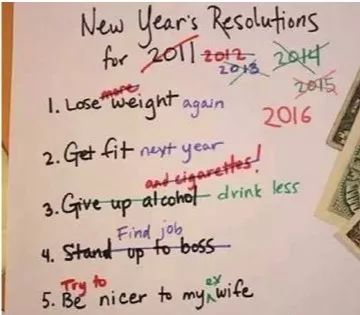 New Year's Resolutions
for 2011 2012 2013 2014 2015 2016
1. Lose more weight again
2. Get fit next year
3. Give up alcohol and cigarettes! drink less
4. Stand up to boss Find job
5. Try to Be nicer to my ex wife